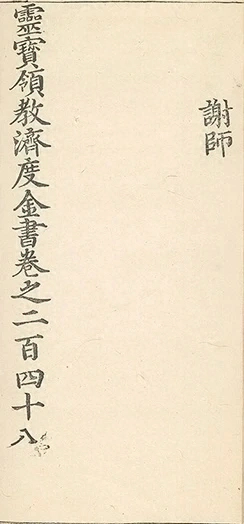 謝師
靈寶領教濟度金書卷之二百四十八